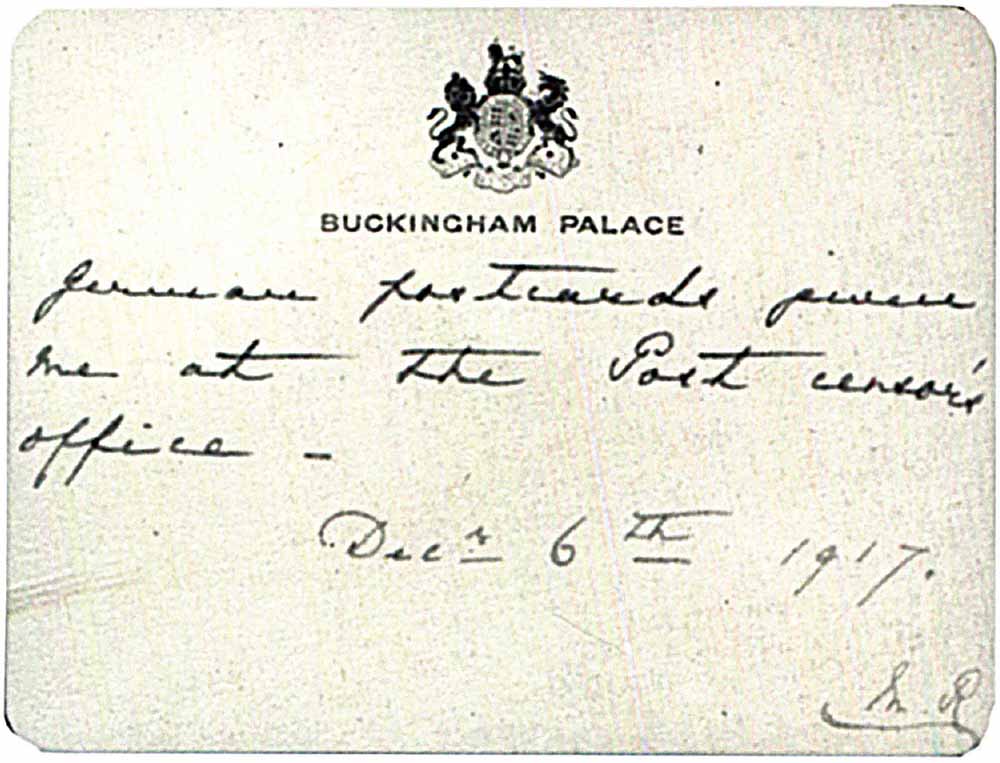 BUCKINGHAM PALACE
German postcards given
me at the Post censor's
office –
Decr 6th 1917.
M. R